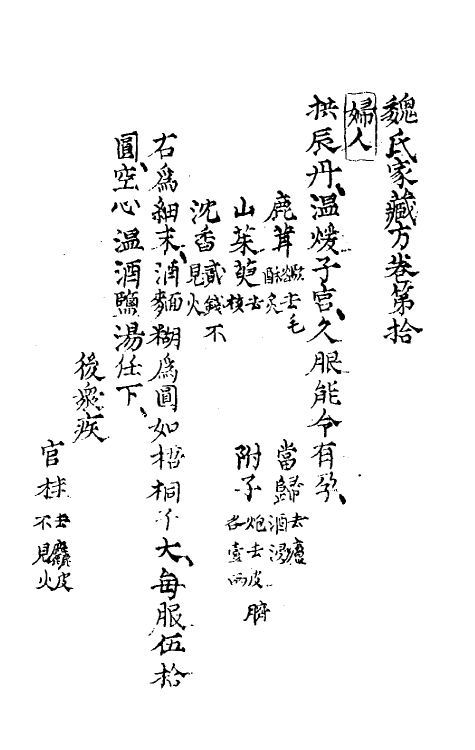 魏氏家藏方卷第拾
婦人
拱辰丹、温煖子宫、久服能令有孕、
鹿茸燎去毛酥炙
當歸去蘆酒浸
山茱萸去核
附子炮去皮臍各壹兩
沈香貳錢不見火
右爲細末、酒麵糊爲圓如梧桐子大、每服伍拾
圓、空心温酒鹽湯任下、
後衆疾
官桂去麤皮不見火